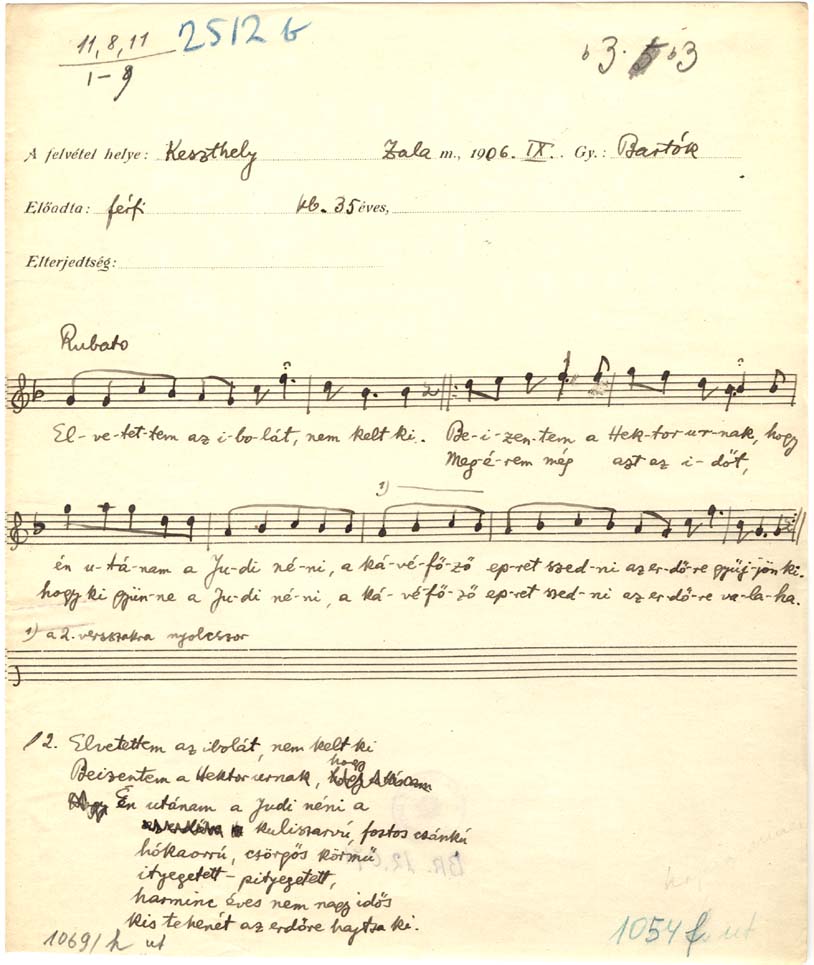 11, 8, 11 2512 b b3. 5 b3
1–9
A felvétel helye: Keszthely Zala m., 1906. IX. Gy.: Bartók
Előadta: férfi kb. 35 éves,
Elterjedtség:
Rubato
El-ve-tet-tem az i-bo-lát, nem kelt ki. Be-i-zen-tem a Hek-tor ur-nak, hogy
Meg-é-rem még azt az i-dőt,
1)
én u-tá-nam a Ju-di né-ni, a ká-vé-fő-ző ep-ret szed-ni az er-dő-re gyüj-jön ki.
hogy ki gyün-ne a Ju-di né-ni, a ká-vé-fő-ző ep-ret szed-ni az er-dő-re va-la-ha.
1) a 2. versszakra nyolcszor
2. Elvetettem az ibolát, nem kelt ki
Beizentem a Hektor urnak, hogy
Én utánam a Judi néni a
kuliszarvú, fostos csánkú
hókaorrú, csörgős körmű
ityegetett-pityegetett,
harminc éves nem nagy idős
kis tehenét az erdőre hajtsa ki.
1069/h ut 1054 f. ut